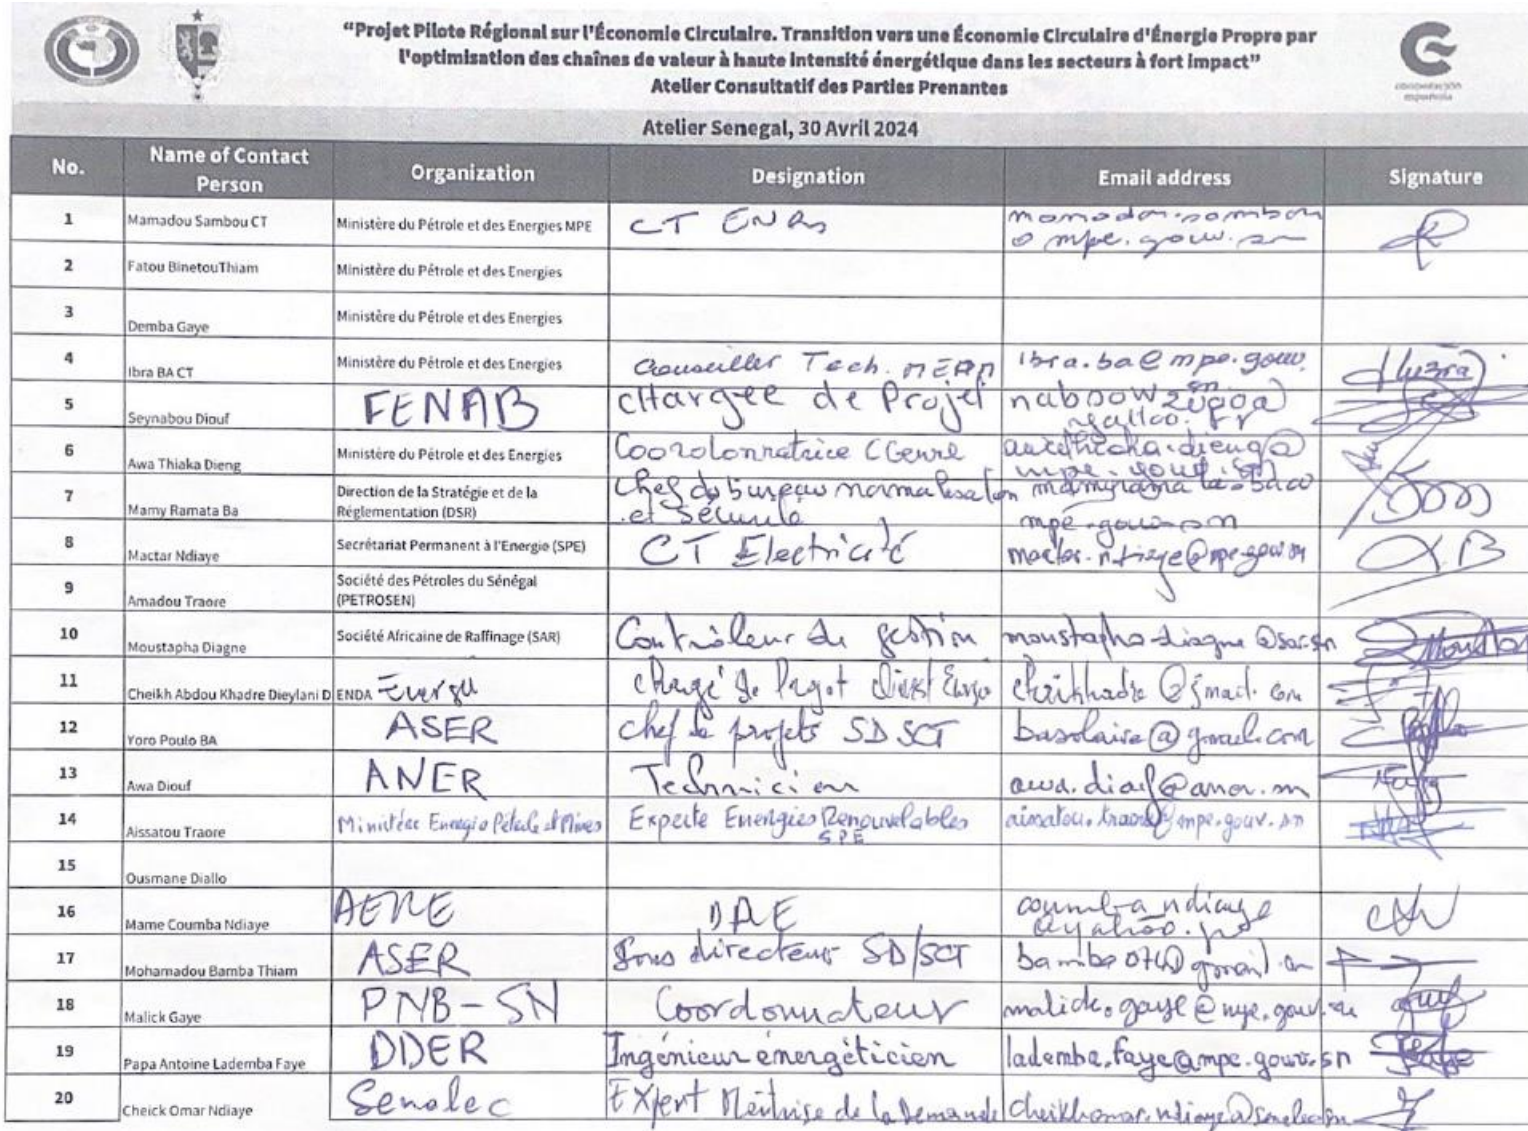 “Projet Pilote Régional sur l'Économie Circulaire. Transition vers une Économie Circulaire d'Énergie Propre par
l'optimisation des chaînes de valeur à haute intensité énergétique dans les secteurs à fort impact”
Atelier Consultatif des Parties Prenantes
cooperación
española
Atelier Senegal, 30 Avril 2024
No. Name of Contact Person Organization Designation Email address Signature
1 Mamadou Sambou CT Ministère du Pétrole et des Energies MPE CT
mpe.gouv.sn
2 Fatou BinetouThiam Ministère du Pétrole et des Energies
3 Demba Gaye Ministère du Pétrole et des Energies
4 Ibra BA CT Ministère du Pétrole et des Energies Conseiller Tech. ibra.ba@mpe.gouv.
sn
5 Seynabou Diouf FENAB chargee de Projet
6 Awa Thiaka Dieng Ministère du Pétrole et des Energies Coordonnatrice CGenre
mpe.gouv.sn
7 Mamy Ramata Ba Direction de la Stratégie et de la Réglementation (DSR) Chef de bureau normalisation
et sécurité
mpe.gouv.sn
8 Mactar Ndiaye Secrétariat Permanent à l'Energie (SPE) CT Electricité mactar.ndiaye@mpe.gouv.sn
9 Amadou Traore Société des Pétroles du Sénégal (PETROSEN)
10 Moustapha Diagne Société Africaine de Raffinage (SAR) Contrôleur de gestion moustapha.diagne@sar.sn
11 Cheikh Abdou Khadre Dieylani D ENDA Energie chargé de Projet
12 Yoro Poulo BA ASER chef de projets SDSCT basolaire@gmail.com
13 Awa Diouf ANER Technicien awa.diouf@aner.sn
14 Aissatou Traore Ministère Energie Pétrole et Mines Experte Energies Renouvelables aissatou.traore@mpe.gouv.sn
SPE
15 Ousmane Diallo
16 Mame Coumba Ndiaye AEME DAE
17 Mohamadou Bamba Thiam ASER Sous directeur SD/SCT
18 Malick Gaye PNB-SN Coordonnateur
19 Papa Antoine Lademba Faye DDER Ingénieur énergéticien lademba.faye@mpe.gouv.sn
20 Cheick Omar Ndiaye Senelec Expert Maîtrise de la Demande cheikhomar.ndiaye@senelec.sn